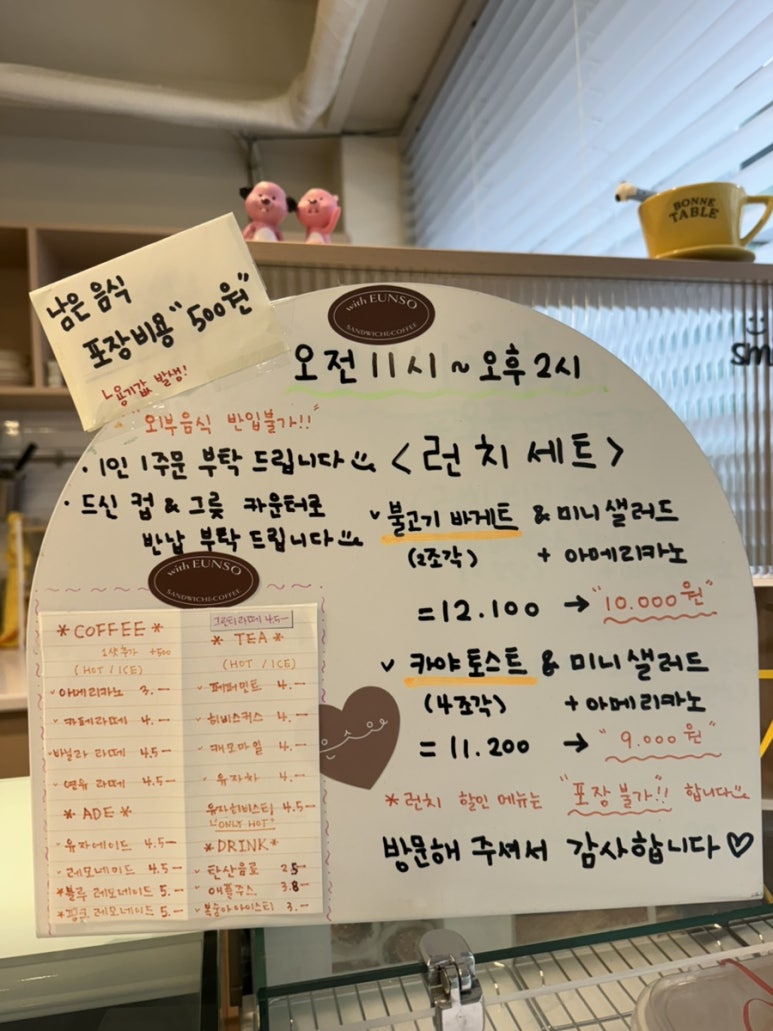 BONNE
TABLE
남은 음식
포장비용 "500원"
용기값 발생!
with EUNSO
SANDWICH&COFFEE
오전 11시 ~ 오후 2시
"외부음식 반입불가!!"
· 1인 1주문 부탁 드립니다
· 드신 컵 & 그릇 카운터로
반납 부탁 드립니다
<런치세트>
불고기 바게트 & 미니 샐러드
(2조각) + 아메리카노
=12.100 → "10.000원"
카야토스트 & 미니 샐러드
(4조각) + 아메리카노
=11.200 → "9.000원"
*런치 할인 메뉴는 "포장불가!!" 합니다
방문해 주셔서 감사합니다♡
with EUNSO
SANDWICH&COFFEE
*COFFEE*
1샷추가 +500
(HOT / ICE)
아메리카노 3.-
카페라떼 4.-
바닐라 라떼 4.5-
연유 라떼 4.5-
*ADE*
유자에이드 4.5-
레모네이드 4.5-
*블루 레모네이드 5.-
*핑크 레모네이드 5.-
그린티라떼 4.5-
*TEA*
(HOT / ICE)
페퍼민트 4.-
히비스커스 4.-
캐모마일 4.-
유자차 4.-
유자히비스티 4.5-
"ONLY HOT"
*DRINK*
탄산음료 2.5-
애플쥬스 3.8-
복숭아아이스티 3.-